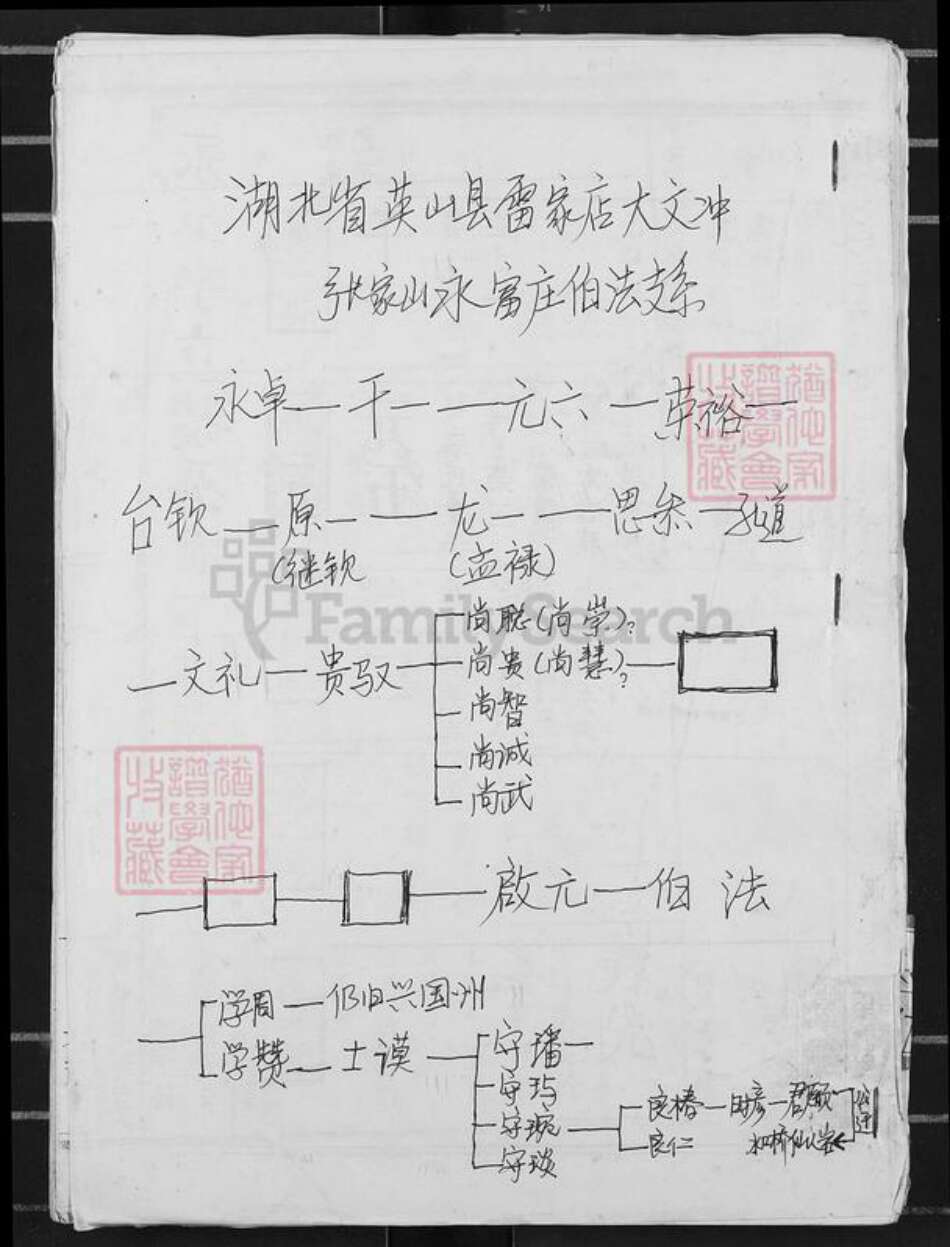 湖北省英山县雷家店大文冲
张家山永富庄伯法支系
永卓—干——元六—荣裕—
台钦—原——龙——思叁—弘道
(继钦 (孟禄)
尚聪(尚崇)?
—文礼—贵驭—尚贵(尚慧)?—
尚智
尚诚
尚武
—启元—伯法
学周—仍旧兴国州
学赞—士谟—守璠—
守玙
守琬—良椿—
良仁
守琰
FamilySearch
猶他家譜學會收藏
猶他家譜學會收藏